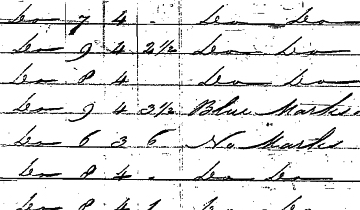 do 7 4 . do do
do 9 4 2½ do do
do 8 4 do do
do 9 4 3½ Blue Marks
do 6 3 6 No Marks
do 8 4 . do do
do 8 4 1 do do